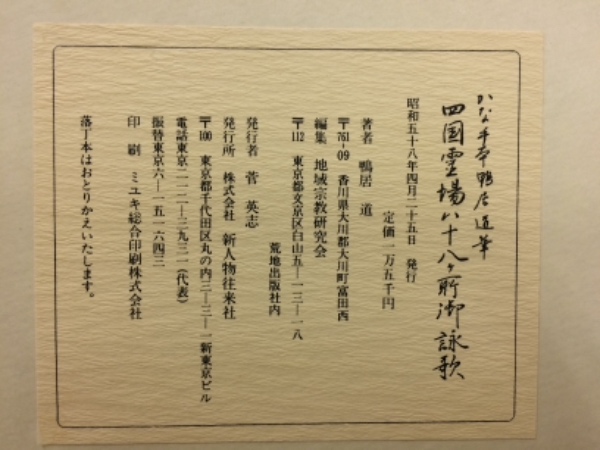 かな手本鴨居道筆
四国霊場八十八ヶ所御詠歌
昭和五十八年四月二十五日 発行
定価 二万五千円
著者 鴨居 道
〒761-09 香川県大川郡大川町富田西
編集 地域宗教研究会
〒112 東京都文京区白山五―一三―一八
荒地出版社内
発行者 菅 英志
発行所 株式会社 新人物往来社
〒100 東京都千代田区丸の内三―三―一新東京ビル
電話東京二一二―三九三一(代表)
振替東京六―一五一六四三
印刷 ミユキ総合印刷株式会社
落丁本はおとりかえいたします。